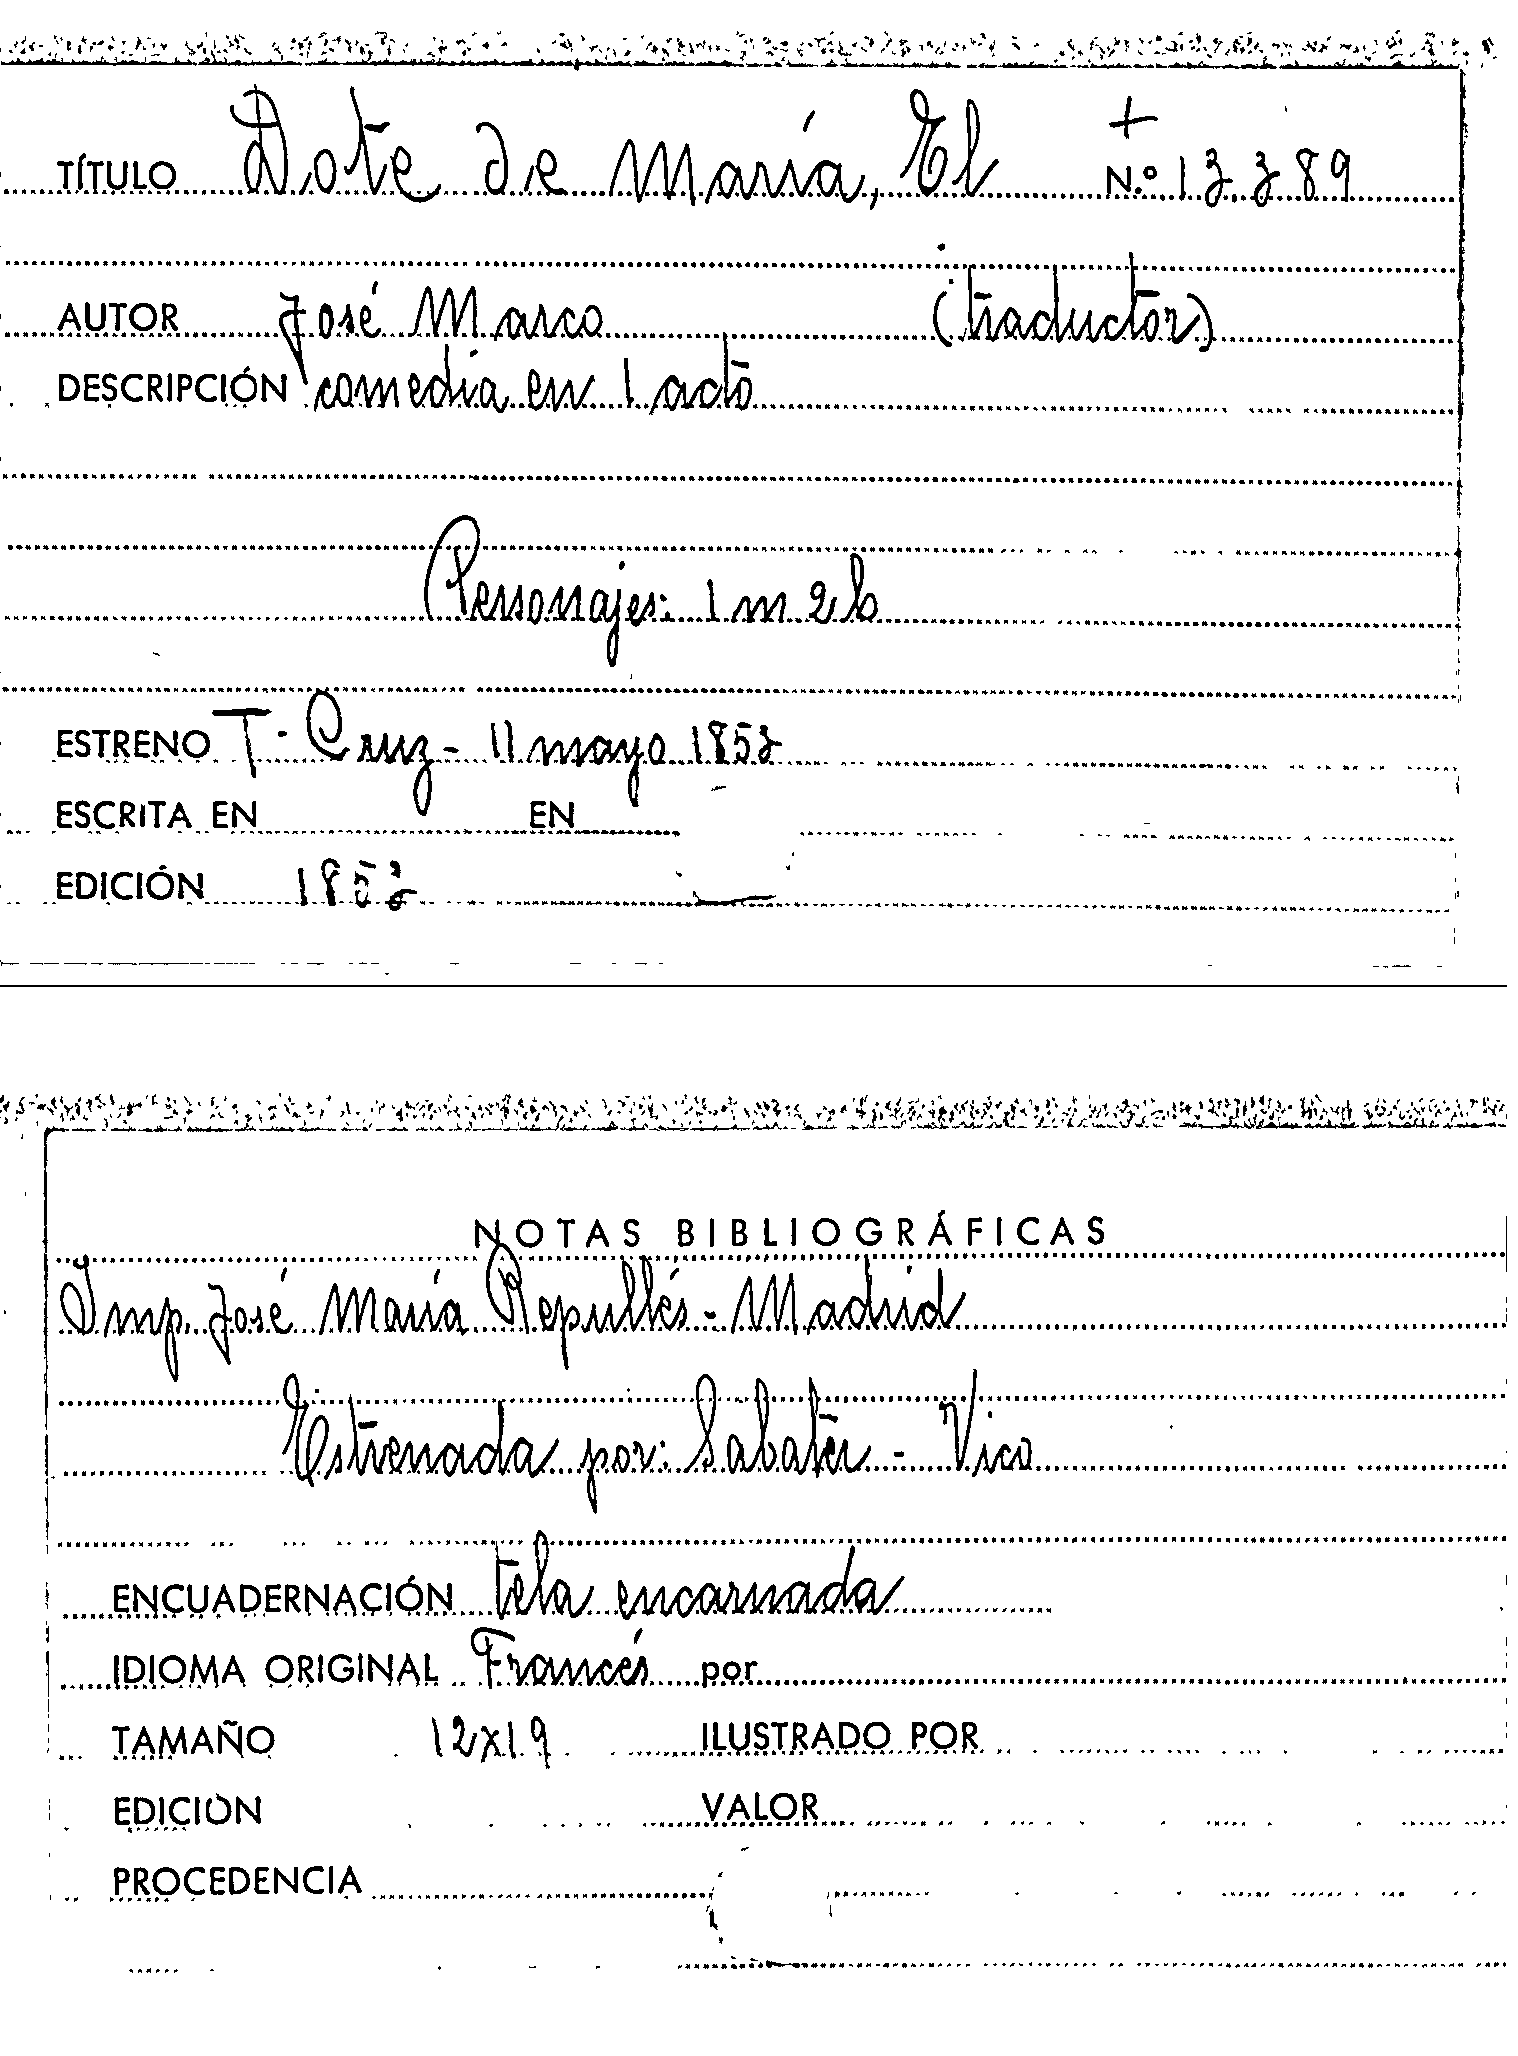 +
TÍTULO Dote de María, El N.º 13.389
AUTOR José Marco (traductor)
DESCRIPCIÓN comedia en 1 acto
Personajes: 1 m 2 h
ESTRENO T. Cruz - 11 mayo 1853
ESCRITA EN EN
EDICIÓN 1853
NOTAS BIBLIOGRÁFICAS
Imp. José María Repullés - Madrid
Estrenada por: Sabater - Vico
ENCUADERNACIÓN tela encarnada
IDIOMA ORIGINAL Francés por
TAMAÑO 12x19 ILUSTRADO POR
EDICIÓN VALOR
PROCEDENCIA